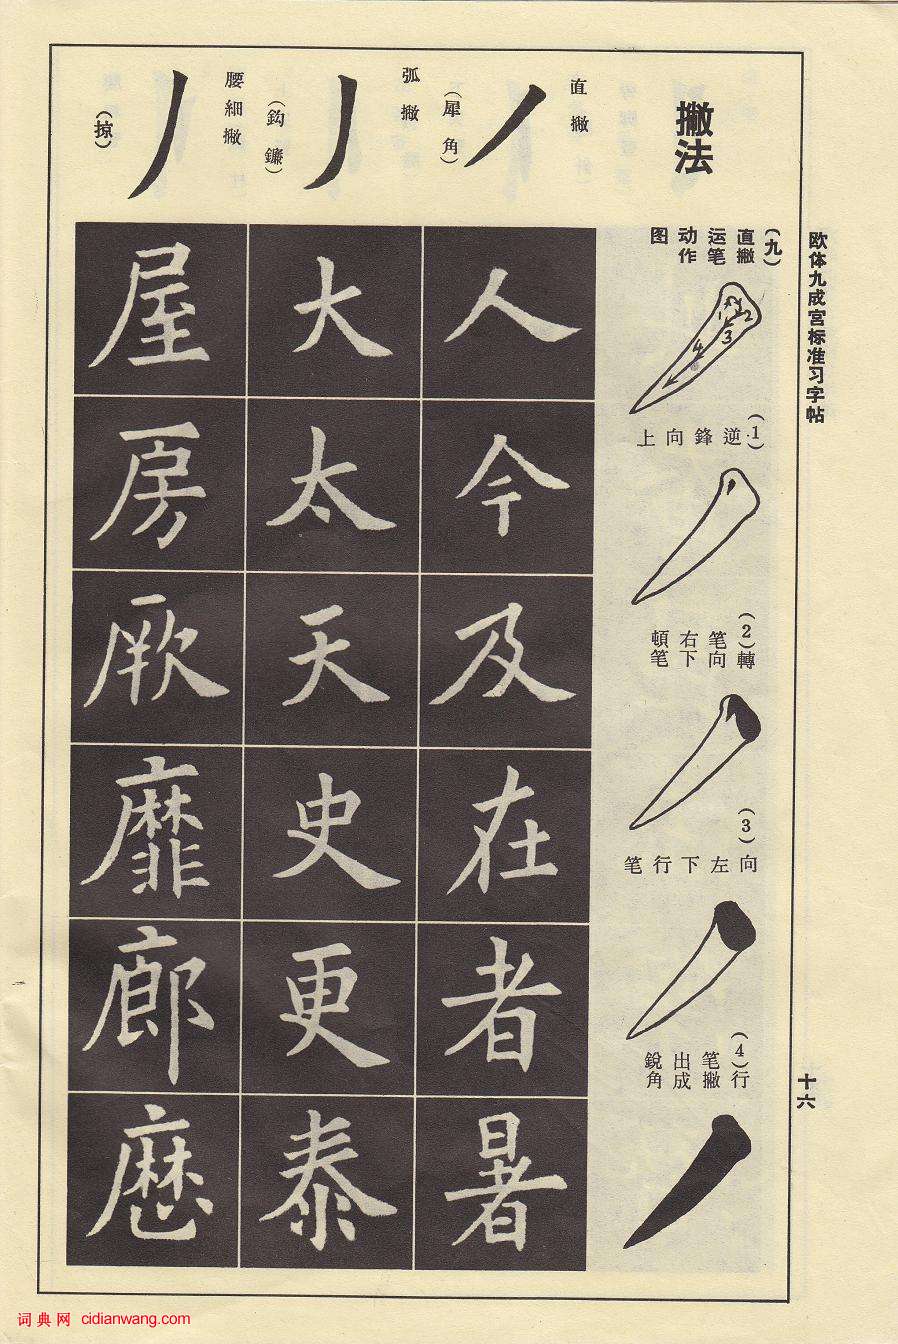 欧体九成宫标准习字帖
十六
撇法
直撇
(犀角)
弧撇
(鈎鐮)
腰細撇
(掠)
(九)
直撇
运笔
动作
图
(1)
逆鋒向上
(2)轉
笔向
右下
頓笔
(3)
向左下行笔
(4)行
笔撇
出成
銳角
人今及在者暑
大太天史更泰
屋房厥靡廊
词典网 cidianwang.com